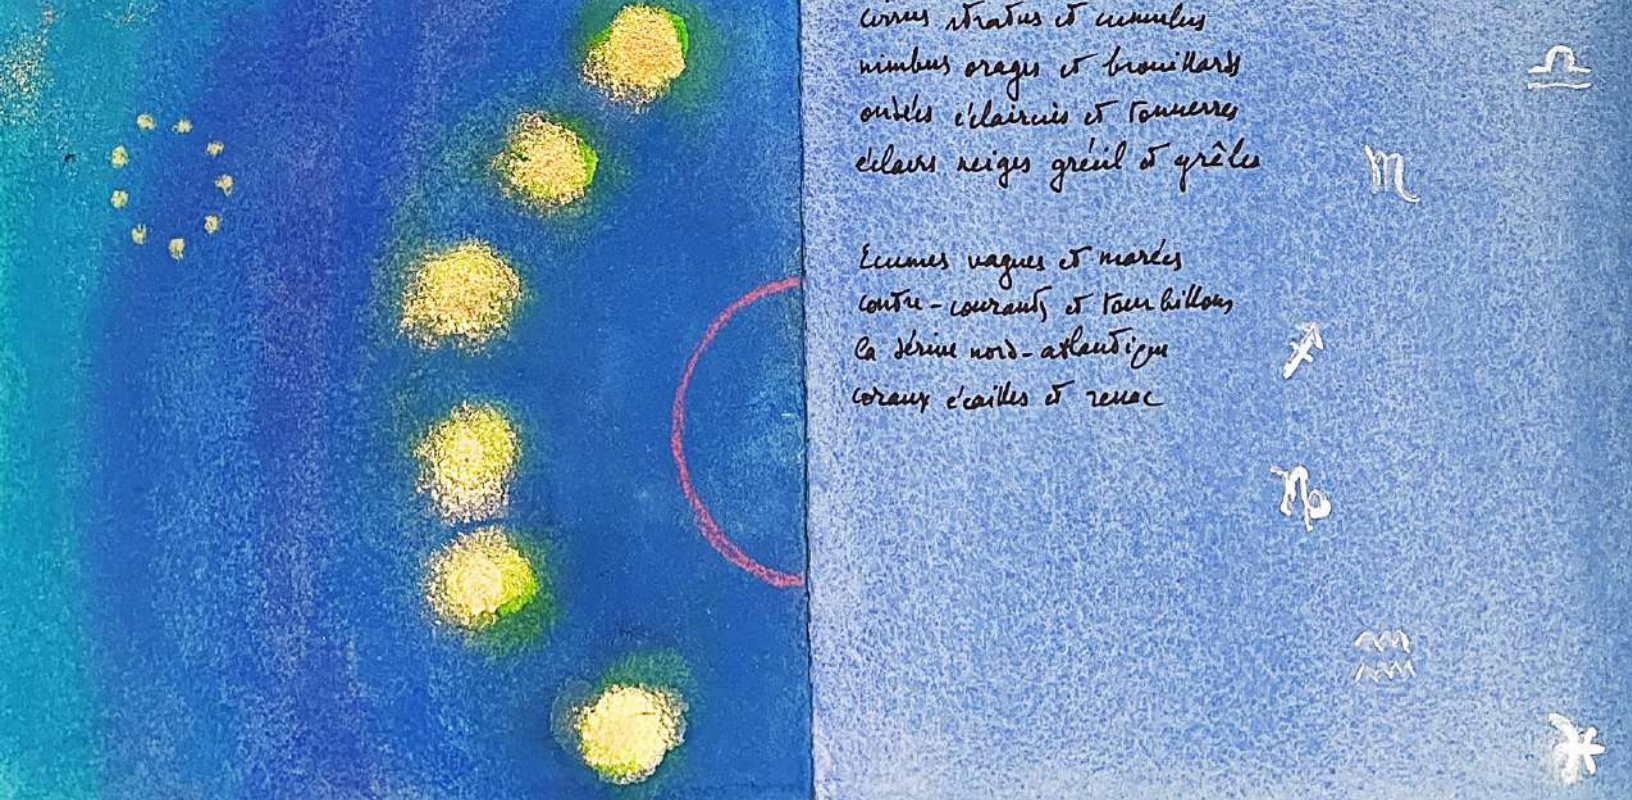 cirrus stratus et cumulus
nimbus orages et brouillards
ondées éclaircies et tonnerres
éclairs neiges grésil et grêles
Ecumes vagues et marées
contre-courants et tourbillons
la dérive nord-atlantique
coraux écailles et ressac